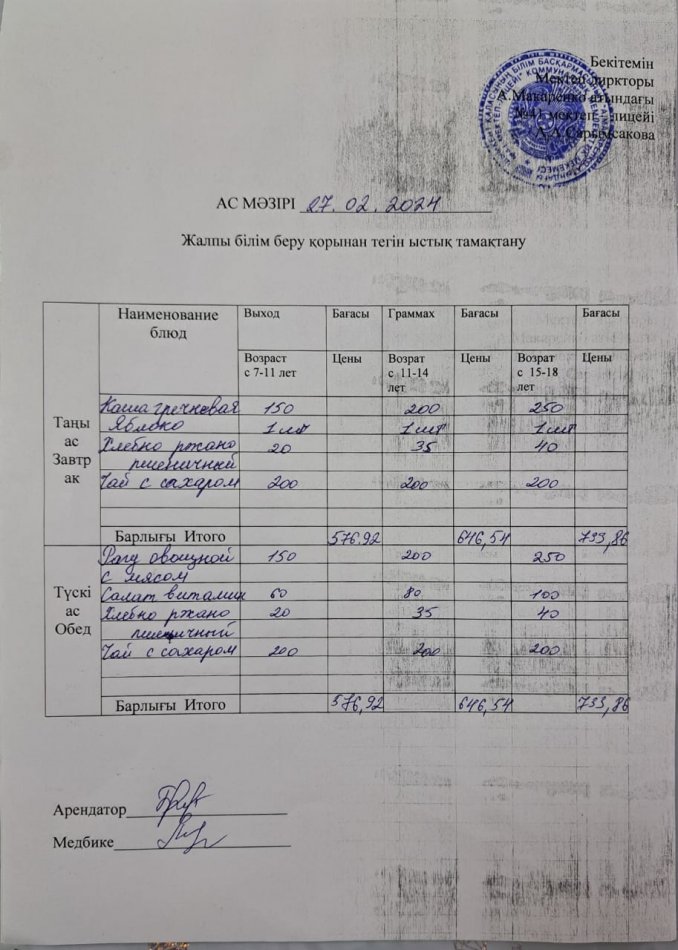 Бекітемін
Мектеп диркторы
А.Макаренко атындағы
№41 мектеп - лицейі
А.А.Сарымсакова
АС МӘЗІРІ 27.02.2024
Жалпы білім беру қорынан тегін ыстық тамақтану
Наименование блюд Выход Бағасы Граммах Бағасы Бағасы
Возраст с 7-11 лет Цены Возрат с 11-14 лет Цены Возрат с 15-18 лет Цены
Таңы ас Завтр ак
Каша гречневая 150 200 250
Яблоко 1 шт 1 шт 1 шт
Хлебно ржано 20 35 40
пшеничный
Чай с сахаром 200 200 200
Барлығы Итого 576.92 646,54 733,86
Түскі ас Обед
Рагу овощной 150 200 250
с мясом
Салат витамин 60 80 100
Хлебно ржано 20 35 40
пшеничный
Чай с сахаром 200 200 200
Барлығы Итого 576,92 646,54 733,86
Арендатор
Медбике